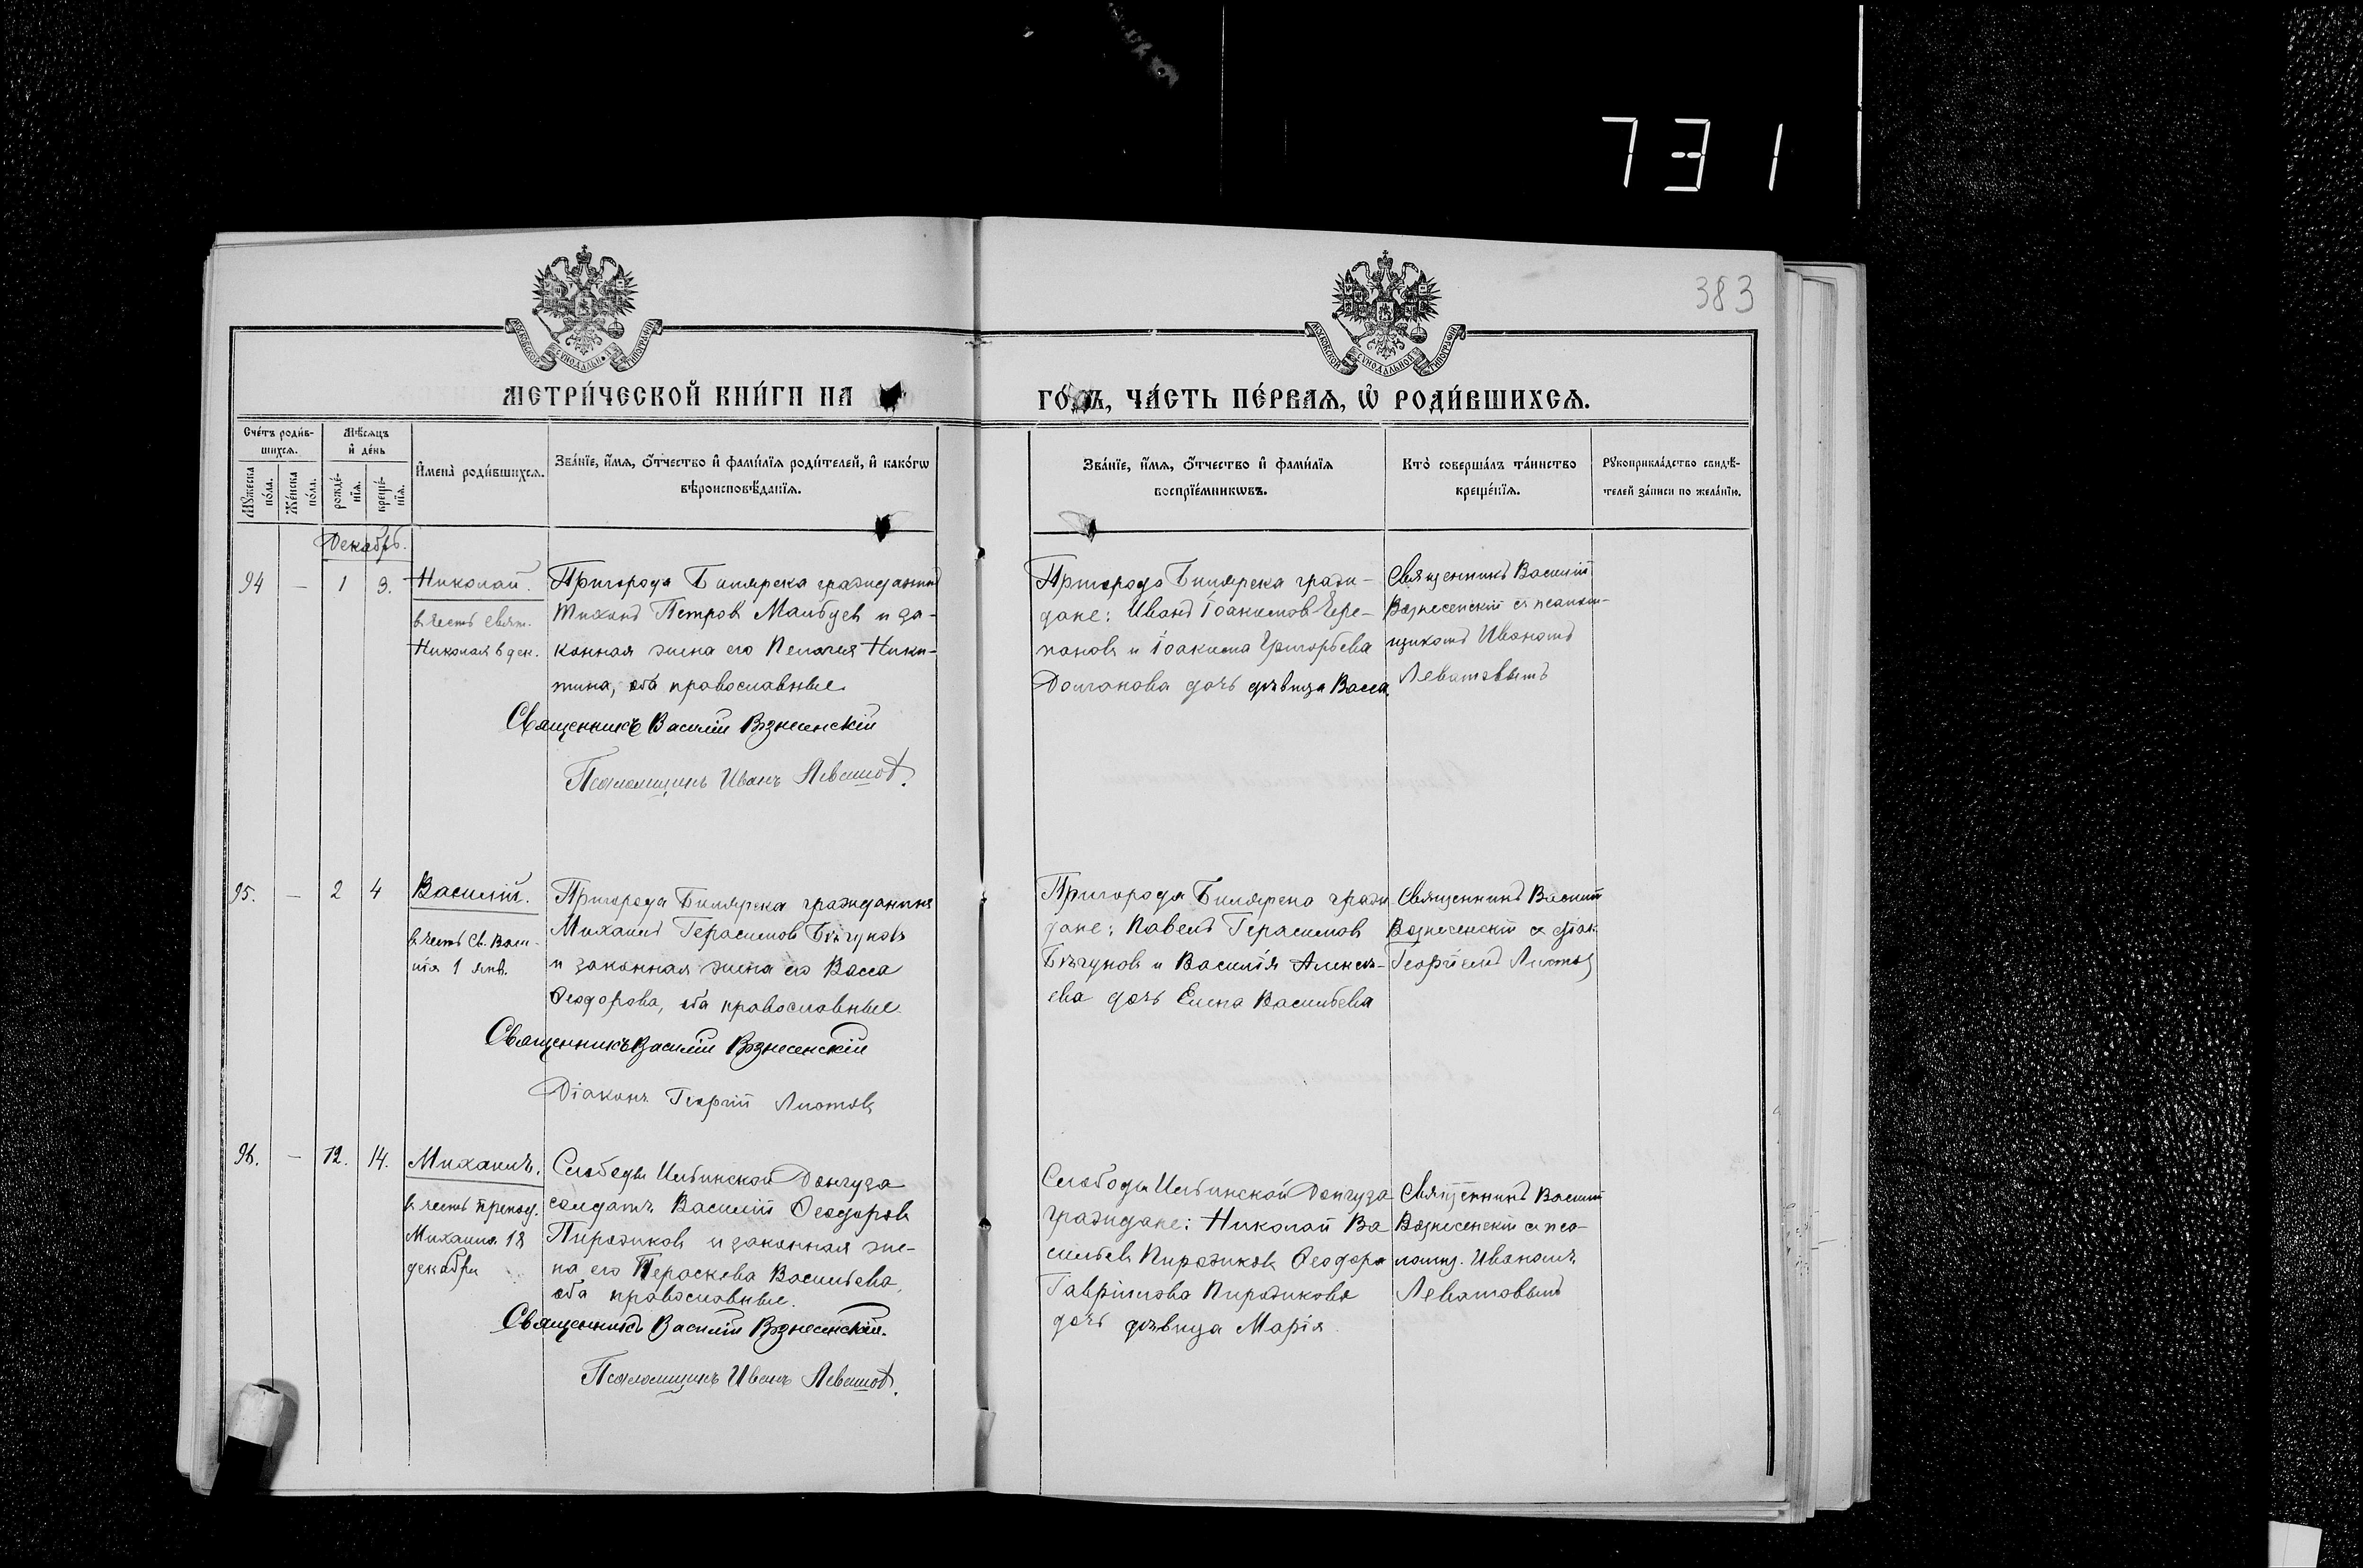 731
383
МОСКОВСКОЙ СУНОДАЛЬНОЙ ТИПОГРАФІИ
МОСКОВСКОЙ СУНОДАЛЬНОЙ ТИПОГРАФІИ
МЕТРИ́ЧЕСКОЙ КНИ́ГИ НА
ГО́ДЪ, ЧА́СТЬ ПЕ́РВАЯ, Ѡ҆ РОДИ́ВШИХСЯ.
Сче́тъ роди́в-
шихся.
Му́жеска
по́ла.
Же́нска
по́ла.
Мѣ́сяцъ
и҆ де́нь
рожде́-
нїя.
креще́-
нїя.
И҆мена̀ роди́вшихся.
Зва́нїе, и҆́мя, ѻ҆́тчество и҆ фами́лїя роди́телей, и҆ како́гѡ
вѣроисповѣ́данїя.
Зва́нїе, и҆́мя, ѻ҆́тчество и҆ фами́лїя
воспрїе́мникѡвъ.
Кто̀ соверша́лъ та́инство
креще́нїя.
Рꙋкоприкла́дство свидѣ́-
телей за́писи по жела́нїю.
Декабрь.
94 — 1 3.
Николай.
в честь свят.
Николая 6 дек.
Пригорода Билярска гражданинъ
Тихонъ Петров Мамбуев и за-
конная жена его Пелагея Ники-
тина, оба православные
Священникъ Василій Вознесенскій
Псаломщикъ Иванъ Левашов.
Пригорода Билярска граж-
дане: Иванъ Іоакимов Чере-
панов и Іоакима Григорьева
Долганова дочь дѣвица Васса
Священникъ Василій
Вознесенскій съ псалом-
щикомъ Иваномъ
Левашовымъ
95. — 2 4
Василій.
в честь Св. Васи-
лія 1 янв.
Пригорода Билярска гражданинъ
Михаилъ Герасимов Бѣгунов
и законная жена его Васса
Ѳеодорова, оба православные.
Священникъ Василій Вознесенскій
Діаконъ Георгій Листов
Пригорода Билярска граж
дане: Павелъ Герасимов
Бѣгунов и Василія Алексѣ-
ева дочь Елена Васильева
Священникъ Василій
Вознесенскій съ діак.
Георгіемъ Листов
96. — 12. 14.
Михаилъ.
в честь препод.
Михаила 18
декабря
Слободы Ильинской Донгуза
солдатъ Василій Ѳеодоров
Пирожков и законная же-
на его Пераскева Васильева,
оба православные.
Священникъ Василій Вознесенскій.
Псаломщикъ Иванъ Левашов.
Слободы Ильинской Донгуза
граждане: Николай Ва
сильев Пирожков Ѳеодора
Гавріилова Пирожкова
дочь дѣвица Марія
Священникъ Василій
Вознесенскій съ пса-
ломщ. Иваномъ
Левашовымъ